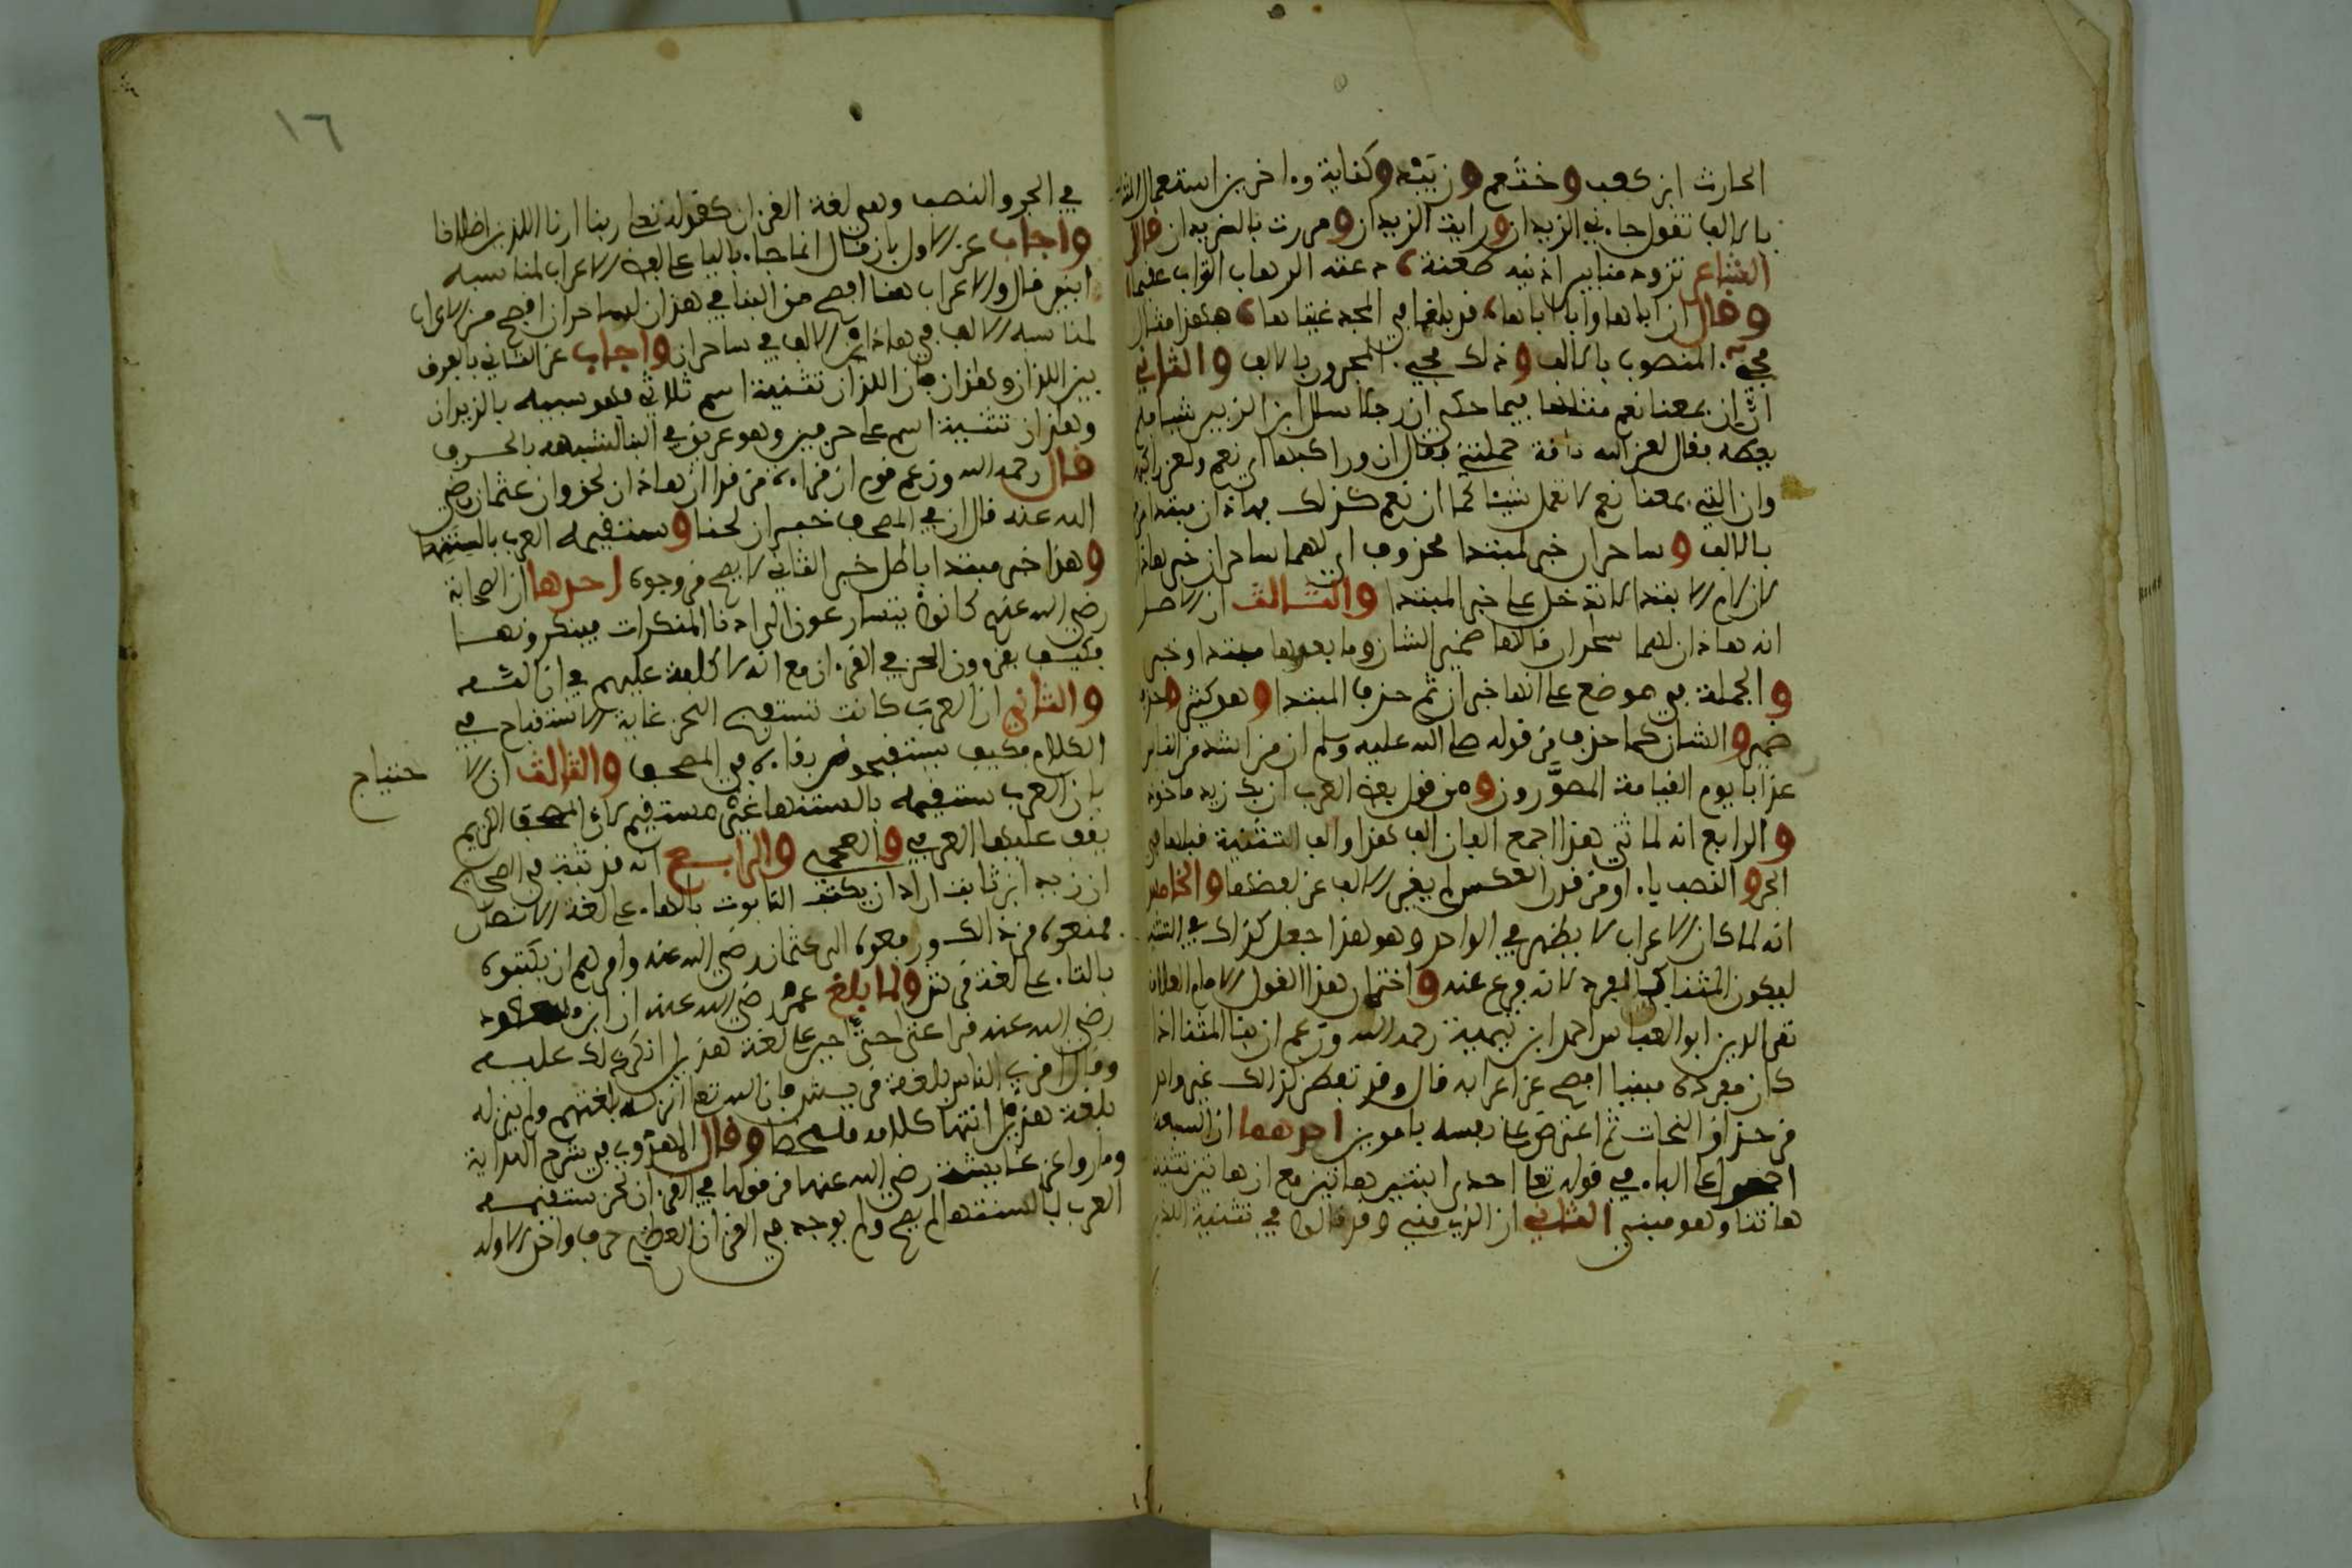 الحارث ابن كعب وخثعم وزبيد وكنانة وءاخرين استعمال المثنا
بالالف تقول جاءني الزيدان ورايت الزيدان ومررت بالزيدان قال
الشاعر تزود منا بين اذنيه طعنة دعته الى هاب التراب عقيما
وقال ان اباها وابا اباها قد بلغا في المجد غيتاها فهذا مثال
مجيء المنصوب بالالف وذلك مجيء المجرور بالالف والثاني
ان ان بمعنا نعم مثلها فيما حكي ان رجلا سال ابن الزبير شيا فلم
يعطه فقال لعن الله ناقة حملتني فقال ان وراكبها اي نعم ولعن راكبها
وان التي بمعنا نعم لا تعمل شيئا كما ان نعم كذلك فهاذان مبتدا مرفوع
بالالف وساحران خبر لمبتدا محذوف اي لهما ساحران خبر هاذان
لان لام الابتدا لا تدخل على خبر المبتدا والثالث ان الاصل
انه هاذان لهما ساحران فالها ضمير الشان وما بعدها مبتدا وخبر
والجملة في موضع على انها خبر ان ثم حذف المبتدا وهو كثير وحذف
ضمير والشان كما حذف من قوله صلى الله عليه وسلم ان من اشد الناس
عذابا يوم القيامة المصورون ومن قول بعض العرب ان بك زيد ماخوذ
والرابع انه لما ثني هذا اجتمع الفان الف هذا والف التثنية فبلها في
الجر والنصب ياء ومن قدر العكس لم يغير الالف عن لفظها والخامس
انه لما كان الاعراب لا يظهر في الواحد وهو هذا جعل كذلك في التثنية
ليكون المثنا كالمفرد لانه فرع عنه واختار هذا القول الامام العلامة
تقي الدين ابو العباس احمد ابن تيمية رحمه الله وزعم ان بنا المثنا اذا
كان مفرده مبنيا افصح عن اعرابه قال وقد تفطن لذالك غير واحد
من حذاق النحات ثم اعترض على نفسه بامرين احدهما ان السبعة
اجمعوا على الياء في قوله تعا احدى ابنتي هاتين مع ان هاتين تثنية
هاتا وهو مبني الثاني ان الذي مبني وقد قالوا في تثنية اللذين
١٦
في الجر والنصب وهي لغة القرءان كقوله تعلى ربنا ارنا اللذين اضلانا
واجاب عن الاول بان قال انما جاء بالياء على لغة الاعراب لمناسبة
ابنتي قال والاعراب هنا افصح من البنا في هذان لساحران افصح من الاعراب
لمناسبة الالف في هاذان الالف في ساحران واجاب عن الثاني بالفرق
بين اللذان وهذان بان اللذان تثنية اسم ثلاثي فهو شبيه بالزيدان
وهذان تثنية اسم على حرفين وهو عريق في البنا لشبهه بالحرف
قال رحمه الله وزعم قوم ان قراءة من قرا ان هاذان لحن وان عثمان رضي
الله عنه قال ان في المصحف لحنا وستقيمه العرب بالسنتها
وهذا خبر مبتدا باطل خبر الثاني لا يصح من وجوه احدها ان الصحابة
رضي الله عنهم كانوا يتسارعون الى ادنا المنكرات فينكرونها
فكيف يقرون اللحن في القرءان مع انه لا كلفة عليهم في ازالته
والثاني ان العرب كانت تستقبح اللحن غاية الاستقباح في
الكلام فكيف يستقيمون بقاءه في المصحف والثالث ان الا
حتجاج
بان العرب ستقيمه بالسنتها غير مستقيم لان المصحف الكريم
يقف عليها العربي والعجمي والرابع انه قد ثبت في الصحيح
ان زيد ابن ثابت اراد ان يكتب التابوت بالهاء على لغة الانصار
فمنعوه من ذالك ورفعوه الى عثمان رضي الله عنه وامرهم ان يكتبوه
بالتاء على لغة قريش ولما بلغ عمر رضي الله عنه ان ابن مسعود
رضي الله عنه قرا عتى حتى حين على لغة هذيل انكر ذلك عليه
وقال اقرئ الناس بلغة قريش فان الله تعا انزله بلغتهم ولم ينزله
بلغة هذيل انتها كلامه ملخصا وقال المهدوي في شرح الهداية
وما روا عن عايشة رضي الله عنها من قولها في القرءان لحن ستقيمه
العرب بالسنتها لم يصح ولم يوجد في القرءان العظيم حرف واحد الا وله